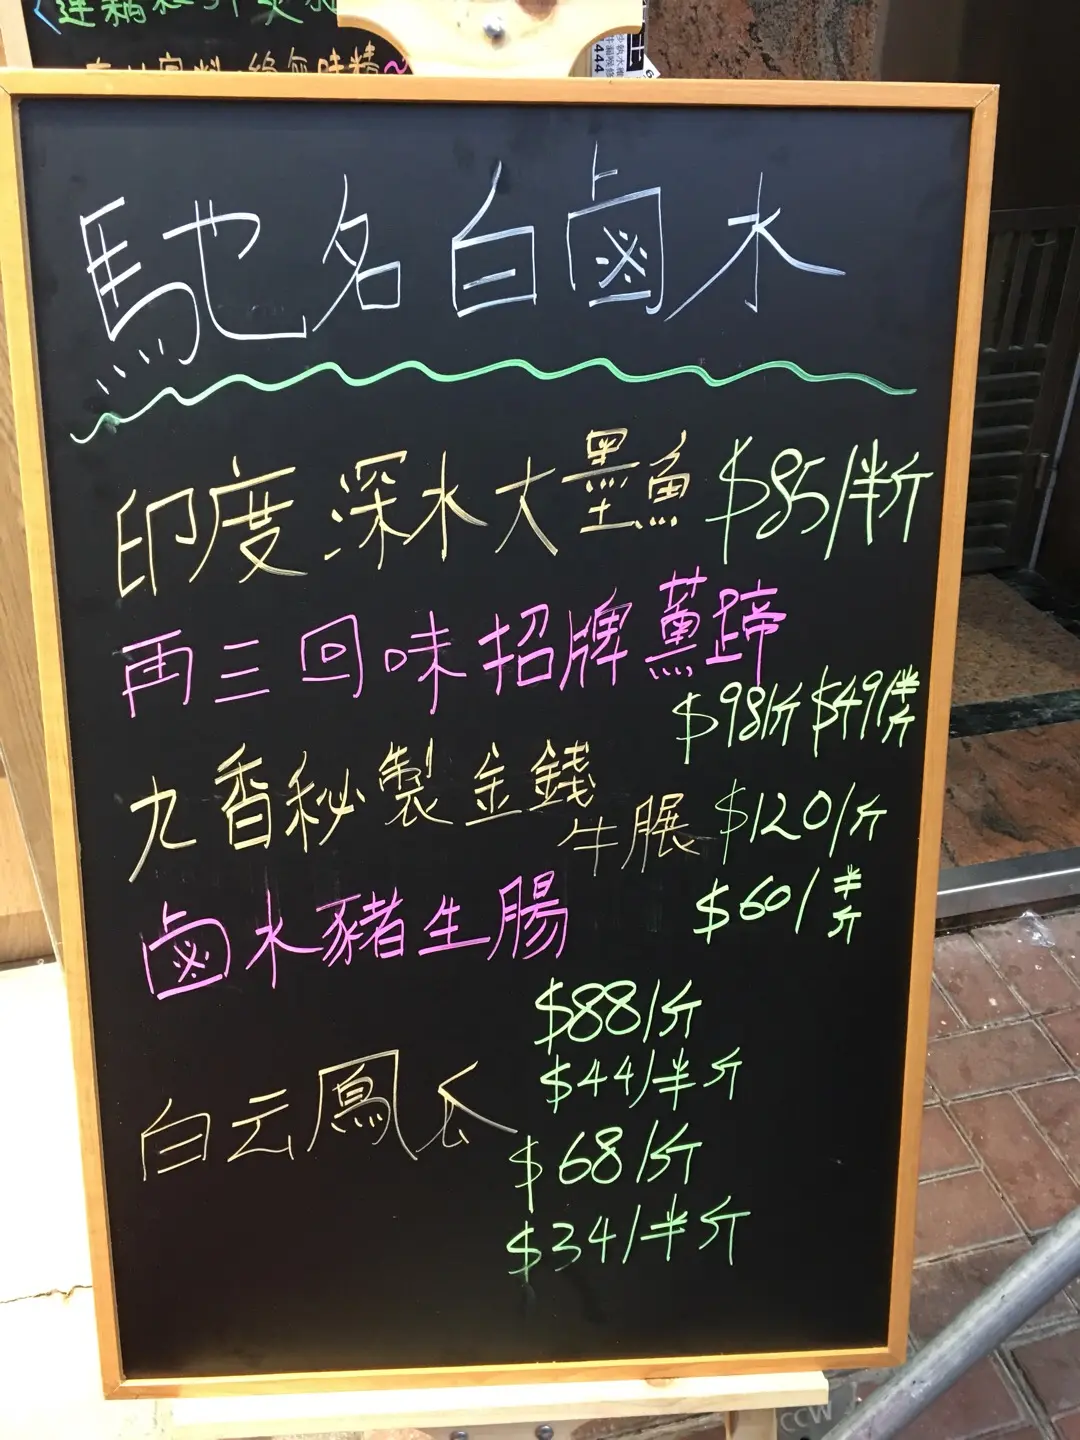 蓮藕
絕無味精~
馳名白鹵水
印度深水大墨魚 $85/半斤
再三回味招牌薰蹄
$98/斤 $49/半斤
九香秘製金錢
牛𦟌 $120/斤
$60/半斤
鹵水豬生腸
$88/斤
$44/半斤
白云鳳爪
$68/斤
$34/半斤
444
CCW